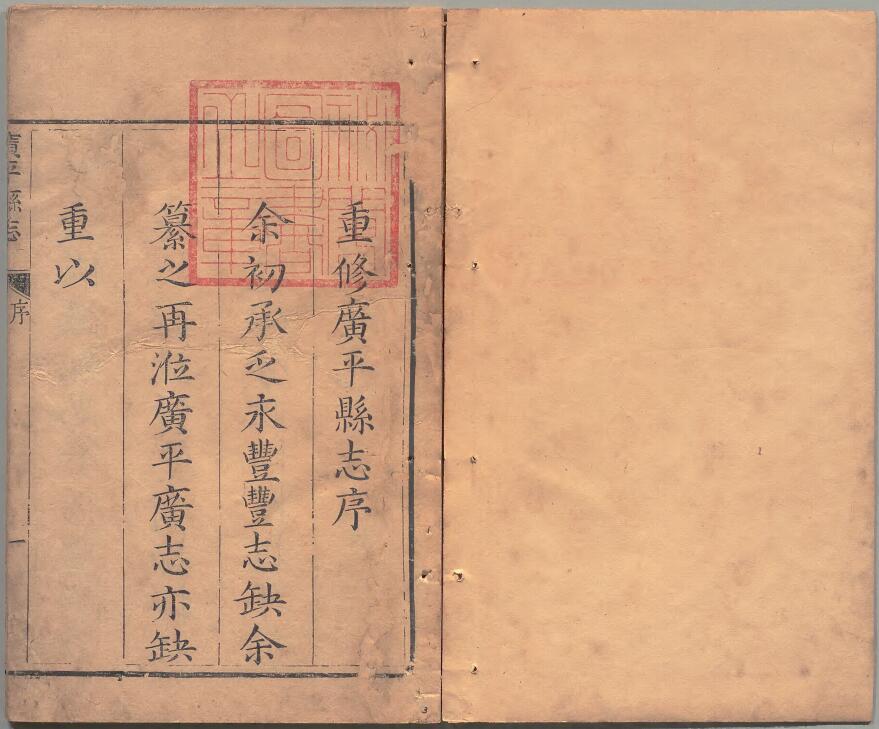 重修廣平縣志序
余初承乏永豐豐志缺余
纂之再涖廣平廣志亦缺
重以
廣平縣志
序
一
3